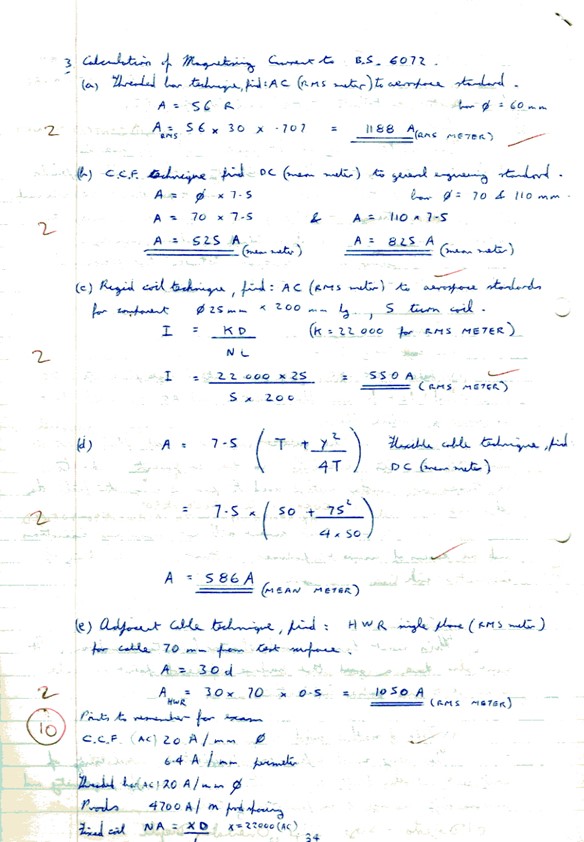 3 Calculation of Magnetising Current to B.S. 6072.
(a) Threaded bar technique, find: AC (RMS meter) to aerospace standard.
A = 56 R bar ø = 60 mm
2 A RMS = 56 x 30 x .707 = 1188 A (RMS METER)
(b) C.C.F. technique find DC (mean meter) to general engineering standard.
A = ø x 7.5 bar ø = 70 & 110 mm.
2 A = 70 x 7.5 & A = 110 x 7.5
A = 525 A (mean meter) A = 825 A (mean meter)
(c) Rigid coil technique, find: AC (RMS meter) to aerospace standards
for component ø 25 mm x 200 mm lg, 5 turn coil.
I = KD / NL (K = 22 000 for RMS METER)
2 I = 22 000 x 25 / 5 x 200 = 550 A (RMS METER)
(d) A = 7.5 ( T + y² / 4T ) Flexible cable technique, find
DC (mean meter)
2 = 7.5 x ( 50 + 75² / 4 x 50 )
A = 586 A (MEAN METER)
(e) Adjacent Cable technique, find: HWR single phase (RMS meter)
for cable 70 mm from test surface.
A = 30 d
2 A HWR = 30 x 70 x 0.5 = 1050 A (RMS METER)
10 Points to remember for exam
C.C.F. (AC) 20 A / mm ø
6.4 A / mm perimeter
Threaded bar (AC) 20 A / mm ø
Prods 4700 A / m prod spacing
Fixed coil NA = KD K = 22000 (AC)
34